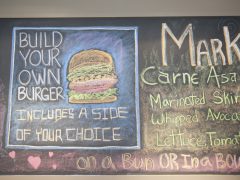 BUILD
YOUR
OWN
BURGER
INCLUDES A SIDE
OF YOUR CHOICE
MARK
Carne Asa
Marinated Skir
Whipped Avoca
Lettuce, Tomat
on a Bun OR In a Bow